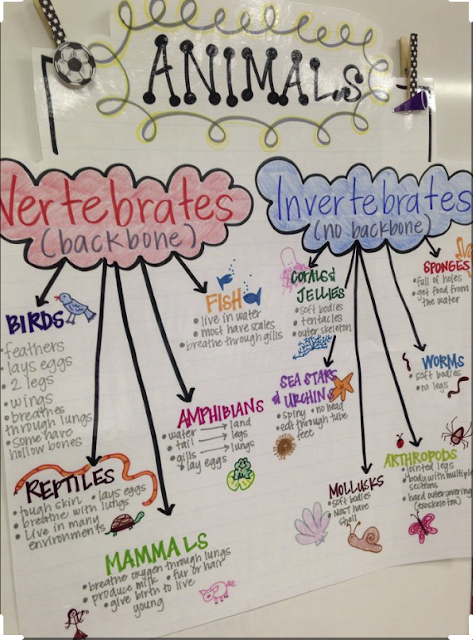 ANIMALS
Vertebrates
(backbone)
Invertebrates
(no backbone)
BIRDS
• feathers
• lays eggs
• 2 legs
• wings
• breathes
through lungs
• some have
hollow bones
FISH
• live in water
• most have scales
• breathe through gills
AMPHIBIANS
• water → land
• tail → legs
• gills → lungs
• lay eggs
REPTILES
• tough skin • lays eggs
• breathe with lungs
• Live in many
environments
MAMMALS
• breathe oxygen through lungs
• produce milk • fur or hair
• give birth to live
young
CORALS &
JELLIES
• soft bodies
• tentacles
• outer skeleton
SPONGES
• full of holes
• get food from
the water
SEA STARS
& URCHINS
• spiny • no head
• eat through tube
feet
WORMS
• soft bodies
• no legs
MOLLUSKS
• soft bodies
• Most have
shell
ARTHROPODS
• jointed legs
• body with multiple
sections
• hard outer covering
(exoskeleton)